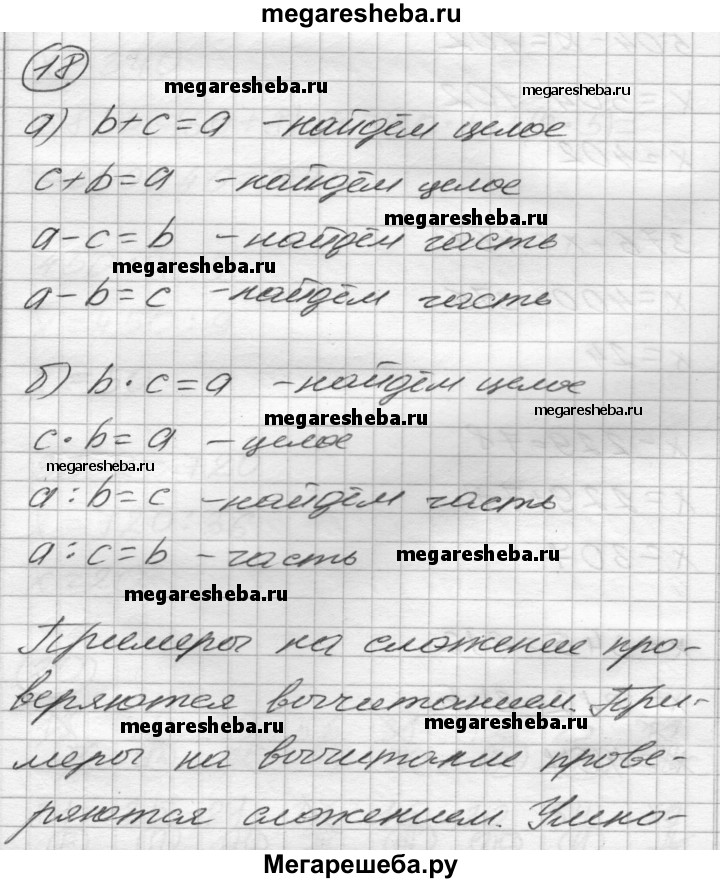 megaresheba.ru
18
megaresheba.ru
а) b+c=a -найдём целое
c+b=a -найдём целое
megaresheba.ru
a-c=b -найдём часть
megaresheba.ru
a-b=c -найдём часть
б) b·c=a -найдём целое
megaresheba.ru
megaresheba.ru
c·b=a -целое
megaresheba.ru
a:b=c -найдём часть
a:c=b -часть
megaresheba.ru
megaresheba.ru
Примеры на сложение про-
веряются вычитанием. При-
megaresheba.ru
megaresheba.ru
меры на вычитание прове-
ряются сложением. Умно-
Мегарешеба.ру